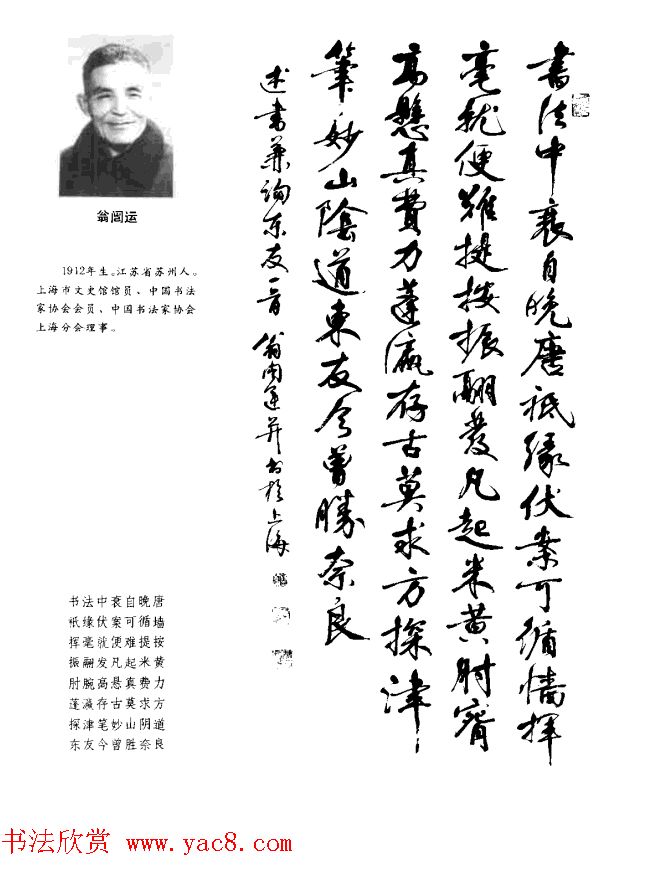 翁闿运
1912年生。江苏省苏州人。
上海市文史馆馆员、中国书法
家协会会员、中国书法家协会
上海分会理事。
書法中衰自晚唐祇緣伏案可循墻揮
毫就便難提按振翮發凡起米黄肘腕
高懸真費力蓬瀛存古莫求方探津
筆妙山陰道東友今曾勝奈良
述書兼詢东友一首 翁闿運并书於上海
书法中衰自晚唐
祇缘伏案可循墙
挥毫就便难提按
振翮发凡起米黄
肘腕高悬真费力
蓬瀛存古莫求方
探津笔妙山阴道
东友今曾胜奈良
书法欣赏 www.yac8.com